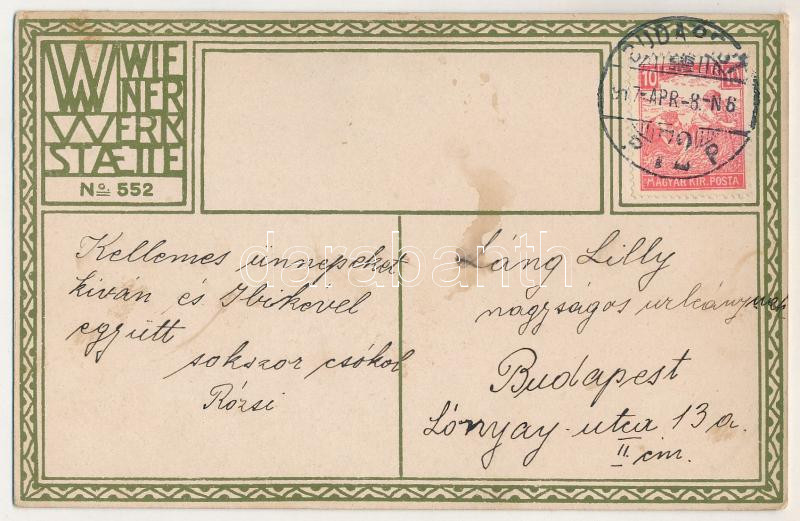 WIENER WERKSTAETTE
No 552
BUDAPEST
917-APR-8-N6
10
MAGYAR KIR. POSTA
Kellemes ünnepeket
kiván és Ibikevel
együtt
sokszor csókol
Rózsi
Láng Lilly
nagyságos urleánynak
Budapest
Lónyay-utca 13 a.
II em.
darabanth